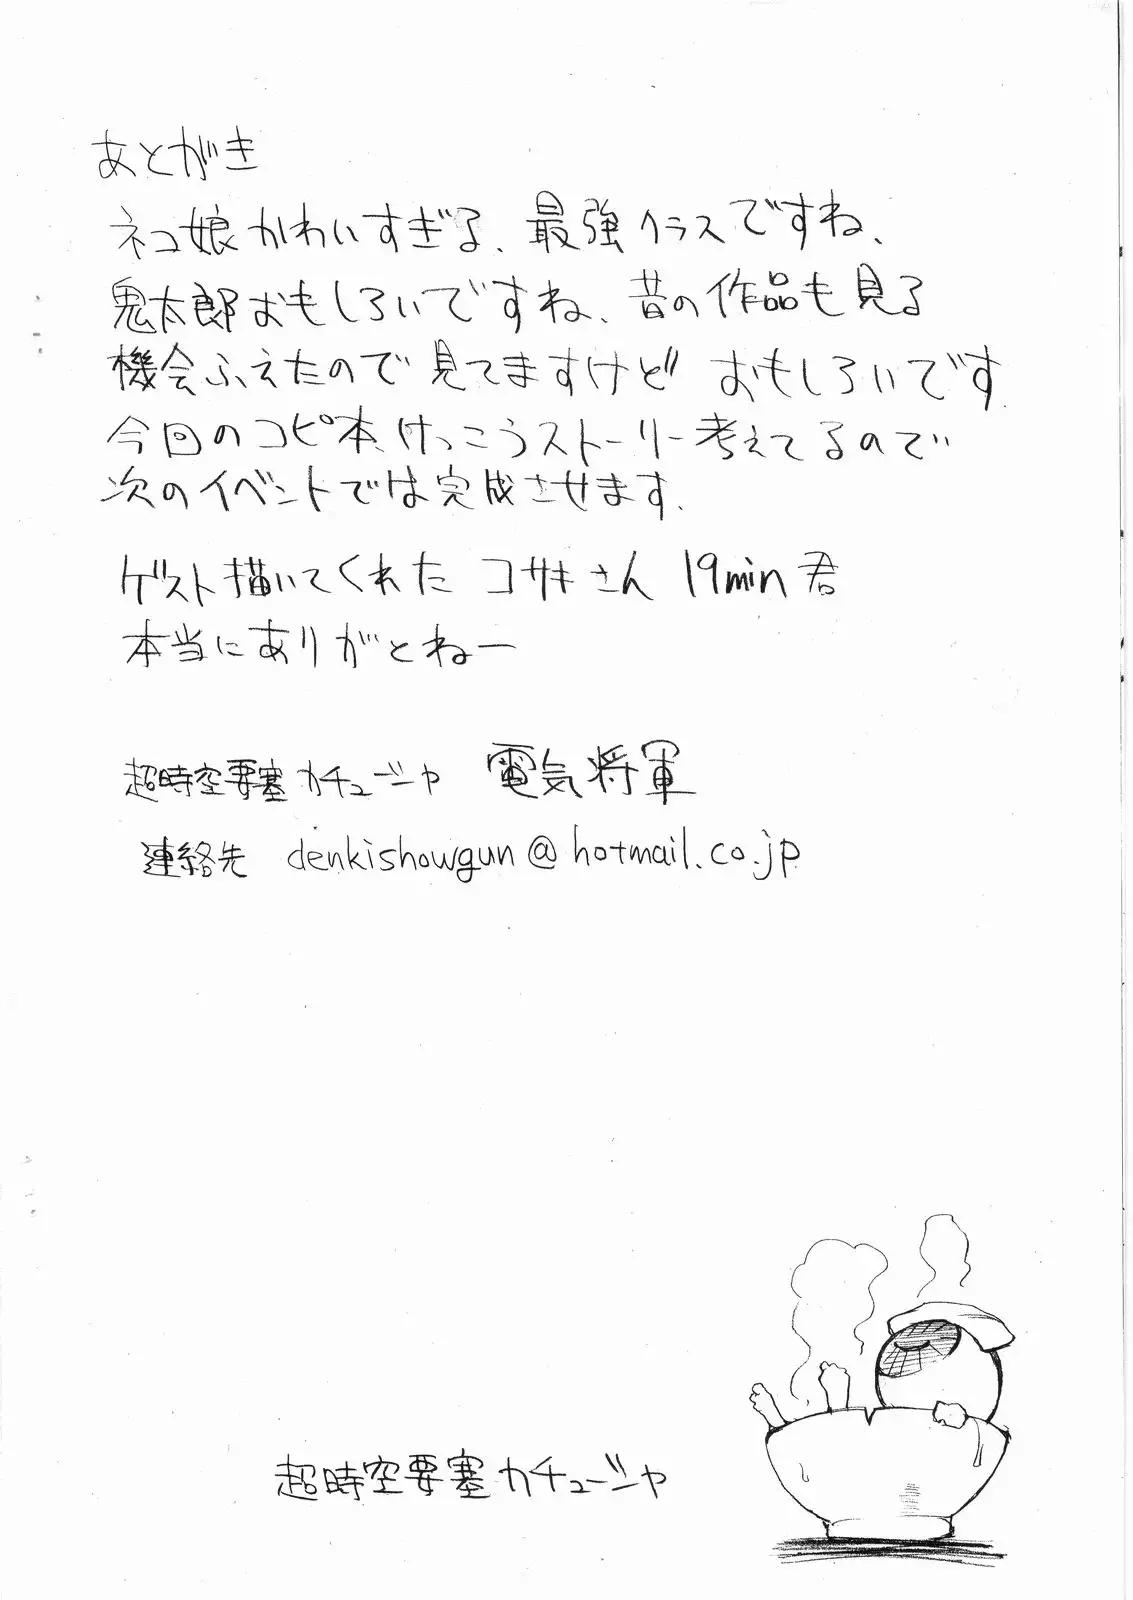 あとがき
ネコ娘かわいすぎる、最強クラスですね、
鬼太郎おもしろいですね、昔の作品も見る
機会ふえたので見てますけど おもしろいです.
今回のコピ本、けっこうストーリー考えてるので
次のイベントでは完成させます.
ゲスト描いてくれた コサキさん 19min君
本当にありがとねー
超時空要塞カチューシャ 電気将軍
連絡先 denkishowgun@hotmail.co.jp
超時空要塞カチューシャ